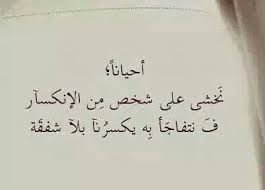 أحياناً؛
نَخشى على شخص مِن الإنكسآر
فَ نتفاجَأ بِه يكسرُنآ بلآ شفقَة